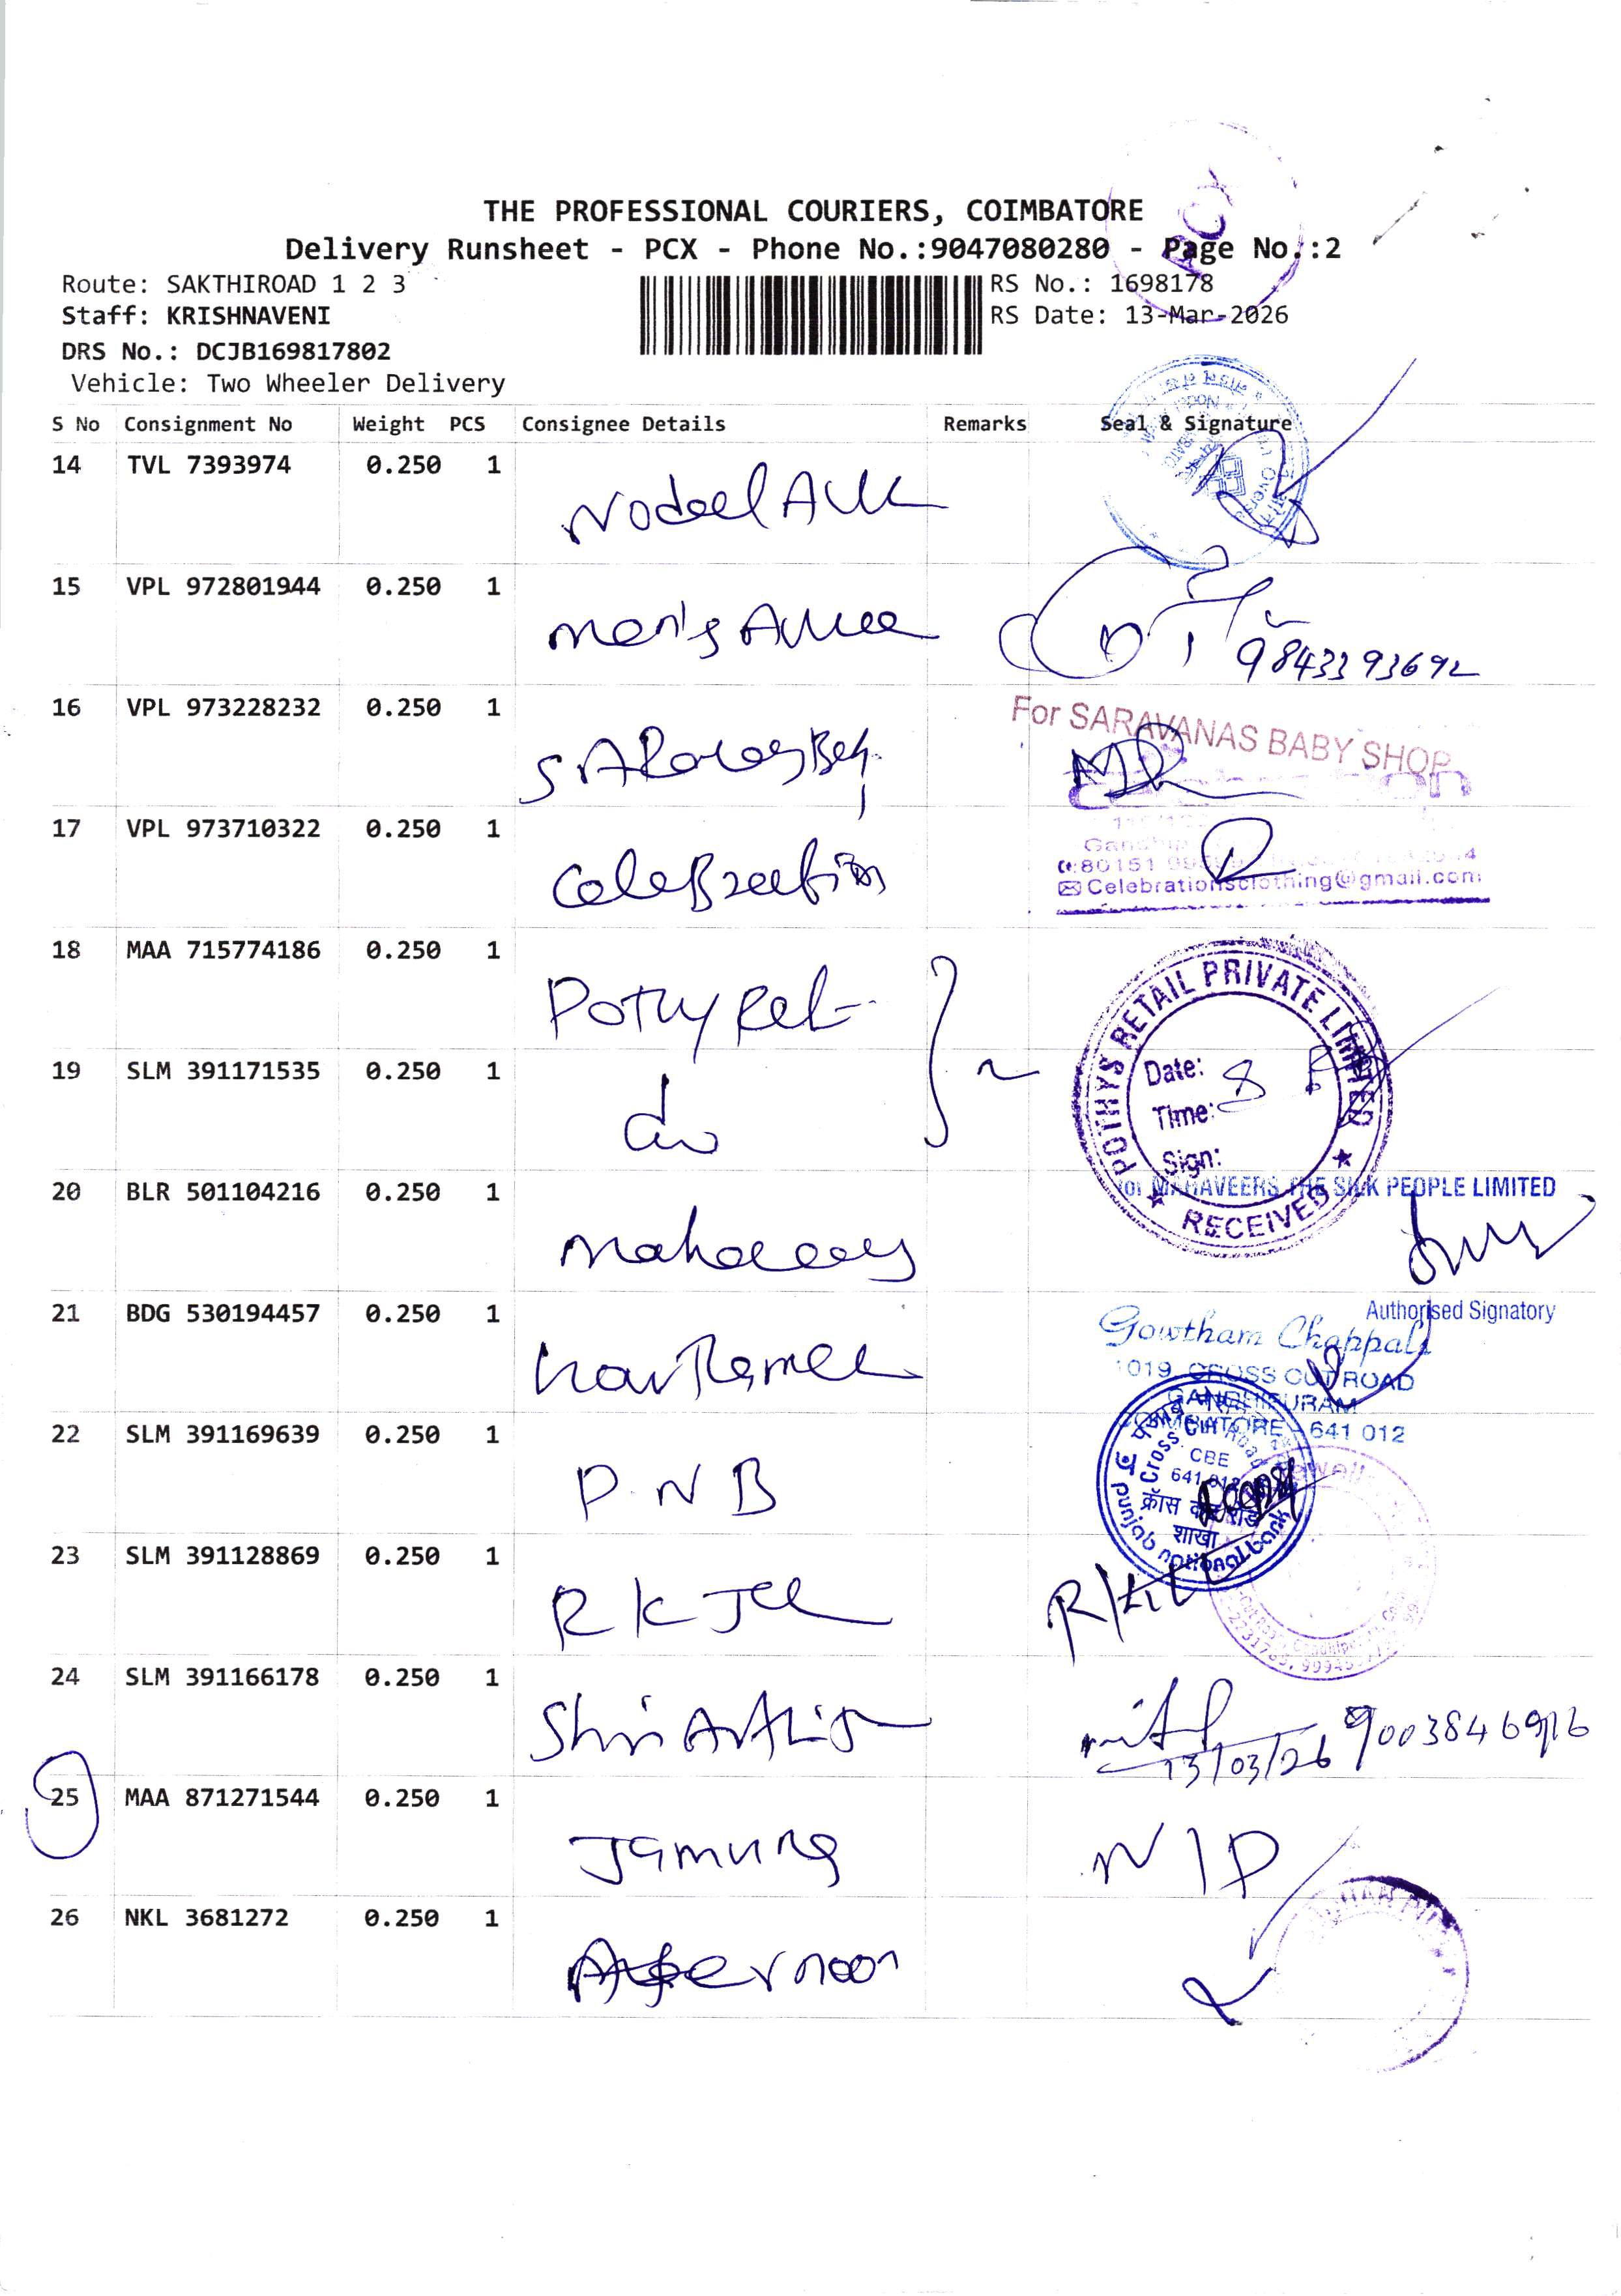 PCX
THE PROFESSIONAL COURIERS, COIMBATORE
Delivery Runsheet - PCX - Phone No.:9047080280 - Page No.:2
Route: SAKTHIROAD 1 2 3
RS No.: 1698178
Staff: KRISHNAVENI
RS Date: 13-Mar-2026
DRS No.: DCJB169817802
Vehicle: Two Wheeler Delivery
S No Consignment No Weight PCS Consignee Details Remarks Seal & Signature
14 TVL 7393974 0.250 1
15 VPL 972801944 0.250 1 men's
9843393692
16 VPL 973228232 0.250 1
For SARAVANAS BABY SHOP
17 VPL 973710322 0.250 1 Celebration
80151
Celebrationsclothing@gmail.com
18 MAA 715774186 0.250 1 Pothy
POTHYS RETAIL PRIVATE LIMITED
19 SLM 391171535 0.250 1 do
Date: 8
Time:
Sign:
RECEIVED
20 BLR 501104216 0.250 1
for MAHAVEERS THE SILK PEOPLE LIMITED
Authorised Signatory
21 BDG 530194457 0.250 1
Gowtham Chappals
1019, CROSS CUT ROAD
GANDHIPURAM
COIMBATORE - 641 012
22 SLM 391169639 0.250 1 P.N.B
Cross Cut Road
CBE
641 012
क्रॉस कट रोड
शाखा
punjab national bank
23 SLM 391128869 0.250 1 R K Jee
24 SLM 391166178 0.250 1 Shri
13/03/26 9003846916
25 MAA 871271544 0.250 1 Jamuna N/D
26 NKL 3681272 0.250 1 Afternoon